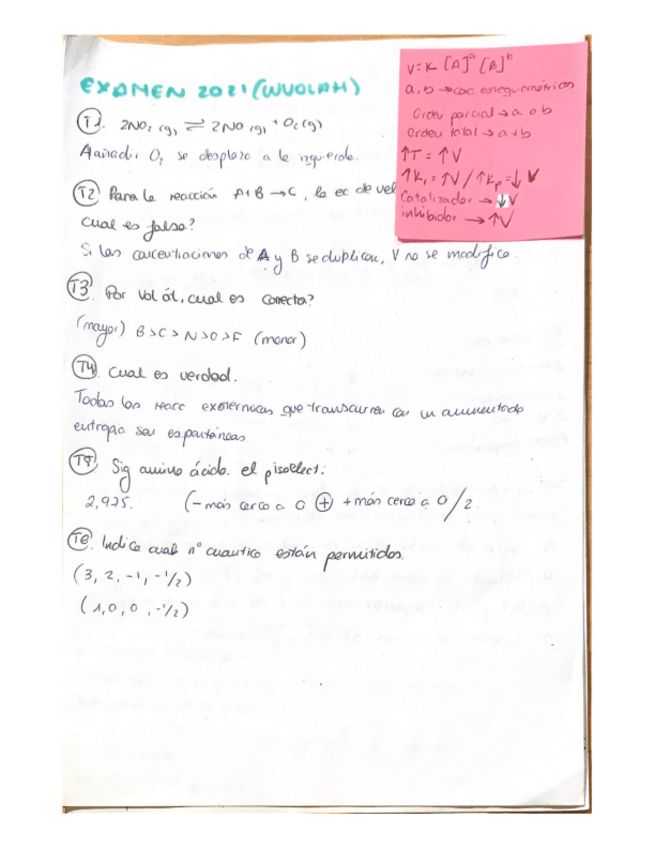 EXAMEN 2021 (WUOLAH)
T1. 2NO2 (g) ⇌ 2NO (g) + O2 (g)
Añadir O2 se desplaza a la izquierda.
T2 Para la reacción A+B → C, la ec de vel
cual es falsa?
Si las concentraciones de A y B se duplican, V no se modifica.
T3. Por Vol át, cual es correcta?
(mayor) B > C > N > O > F (menor)
T4. Cual es verdad.
Todas las reacc exotérmicas que transcurren con un aumento de
entropía son espontáneas
T5. Sig amino ácido. el pisoelect:
2,975. (- más cerca a 0 + + más cerca a 0 / 2.
T6. Indica cual nº cuántico están permitidos.
(3, 2, -1, -1/2)
(1, 0, 0, -1/2)
V = K [A]^a [A]^b
a, b → coc estequiométricos
Orden parcial → a o b
Orden total → a + b
↑T = ↑V
↑K, = ↑V / ↑Kp = ↓ V
Catalizador → ↓ V
inhibidor → ↑V